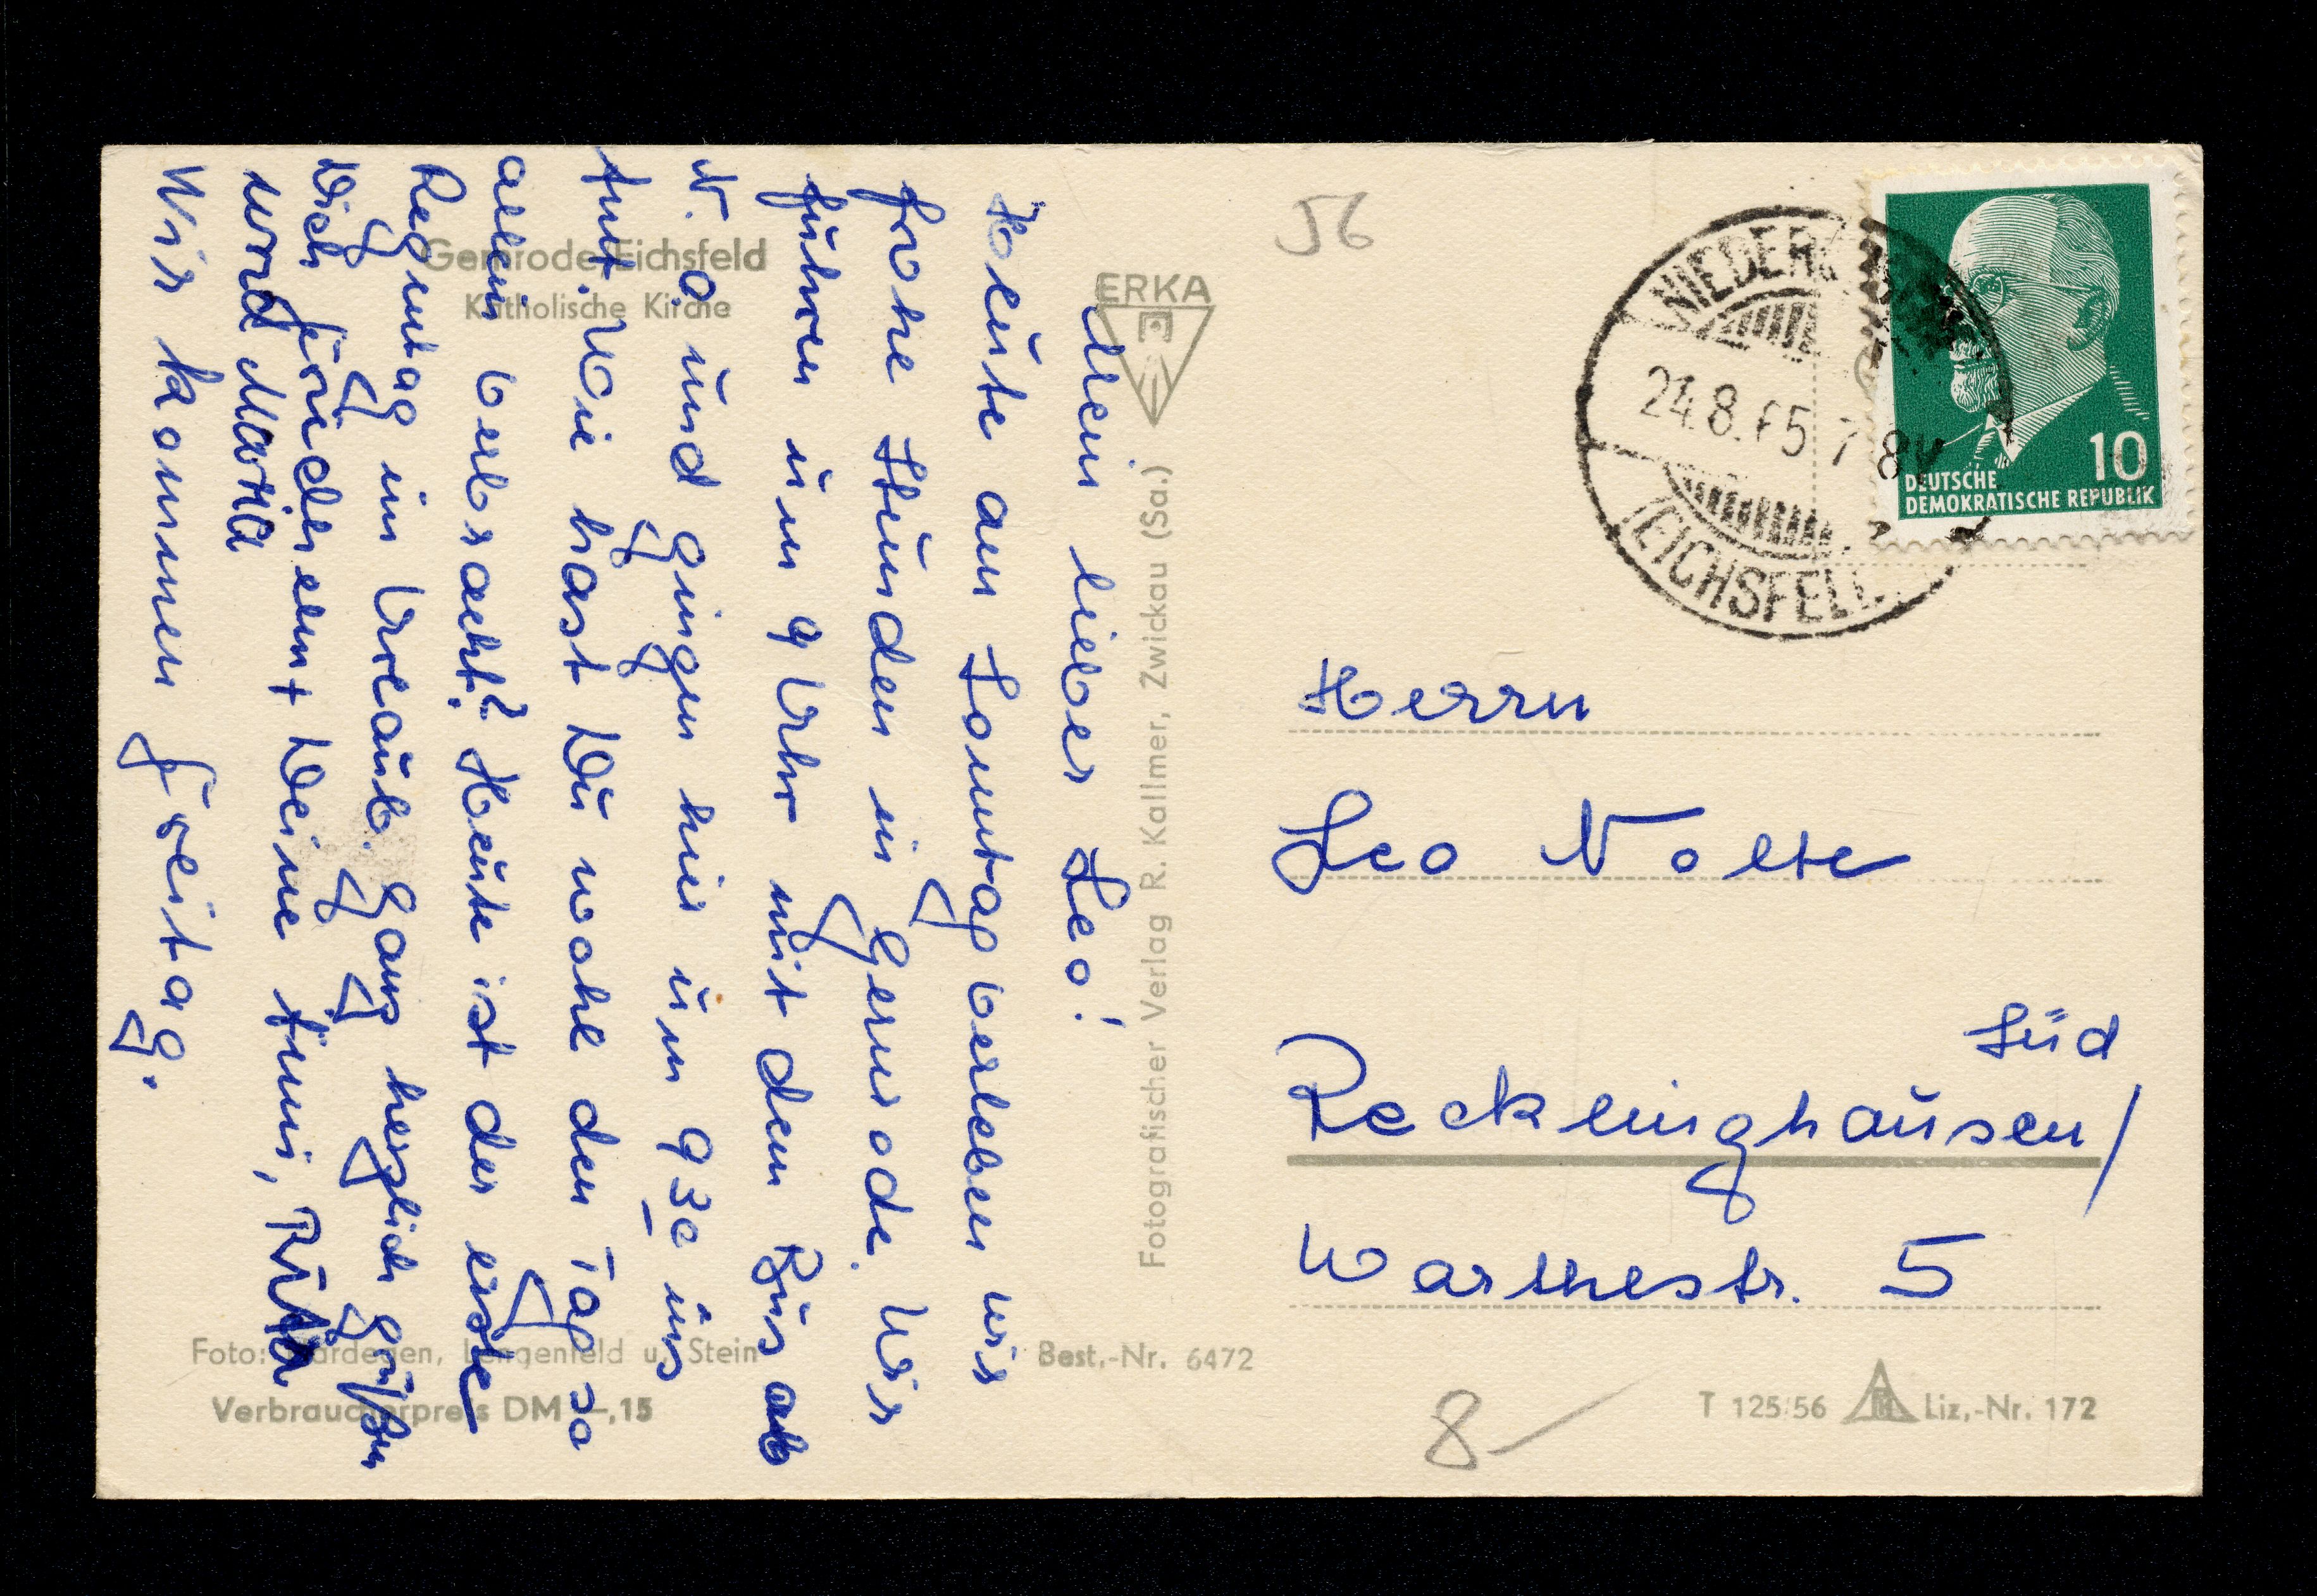 Mein lieber Leo!
Heute am Sonntag verleben wir
frohe Stunden in Gernrode. Wir
fuhren um 9 Uhr mit dem Bus ab
N. O. und gingen hier um 930 ins
Amt. Wie hast Du wohl den Tag so
allein verbracht? Heute ist der erste
Regentag im Urlaub. Ganz herzlich grüßen
Dich Friedchen + Deine Änni, Rita
und Maria
Wir kommen Freitag.
Gernrode/Eichsfeld
Katholische Kirche
ERKA
Fotografischer Verlag R. Kallmer, Zwickau (Sa.)
Foto: Lengenfeld u. Stein
Verbraucherpreis DM —,15
Best.-Nr. 6472
56
24.8.65
EICHSFELD
10
DEUTSCHE
DEMOKRATISCHE REPUBLIK
Herrn
Leo Nolte
Süd
Recklinghausen/
Warthestr. 5
8
T 125/56
Liz.-Nr. 172